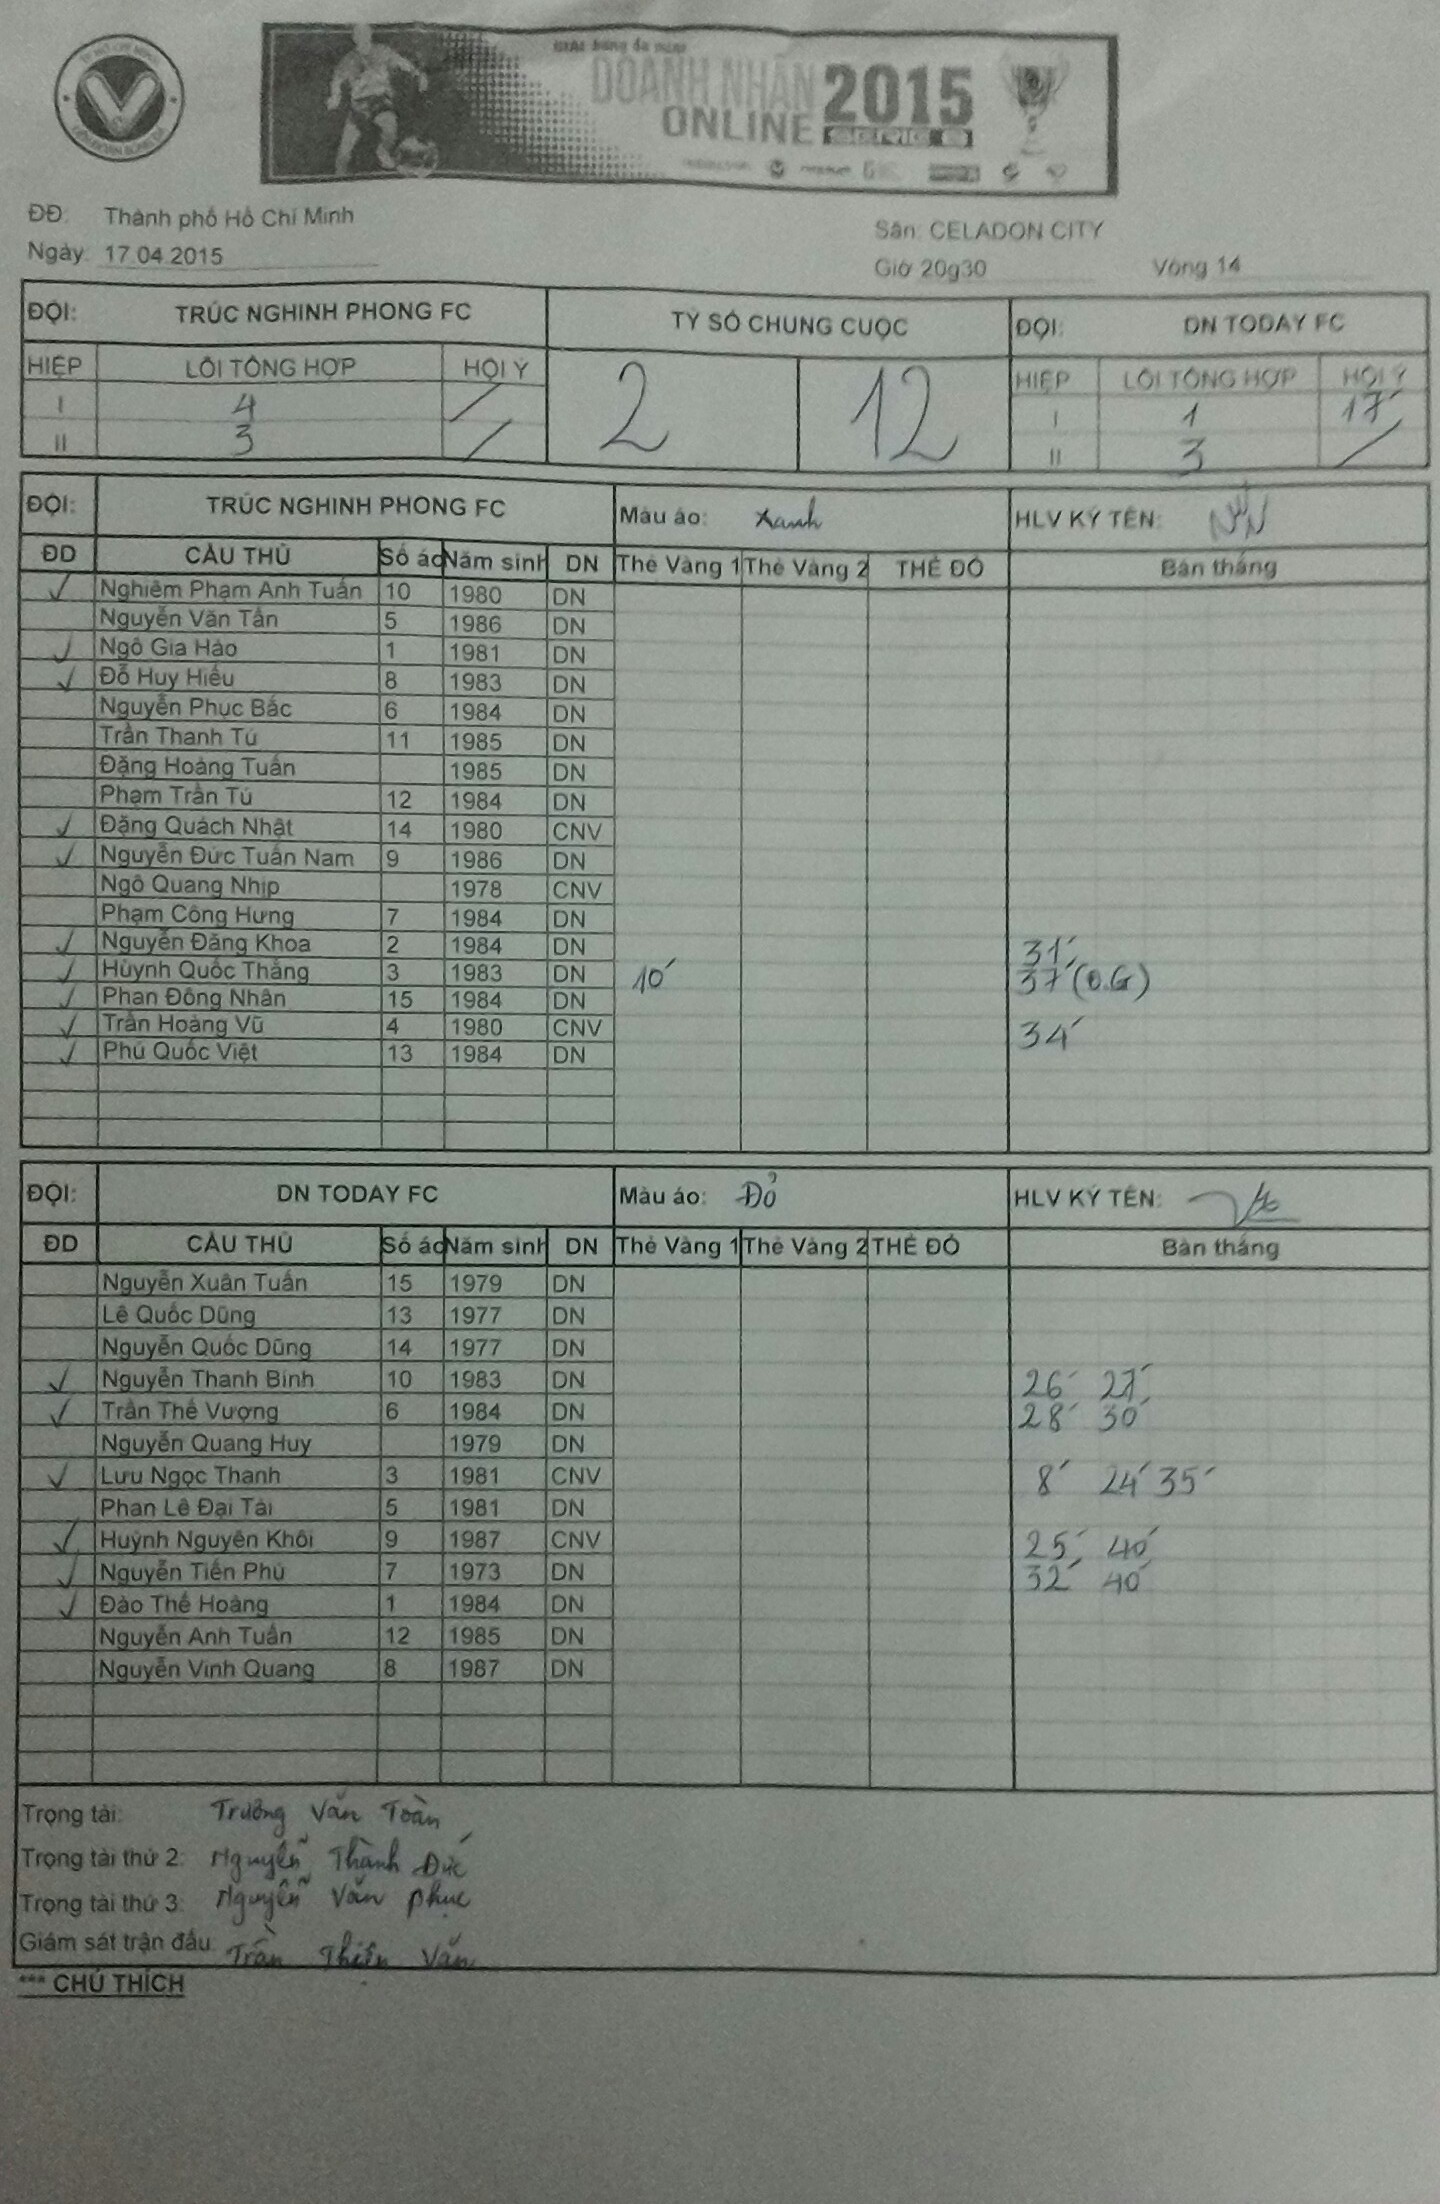 GIẢI bóng đá mini
DOANH NHÂN
ONLINE 2015
ĐĐ: Thành phố Hồ Chí Minh
Sân: CELADON CITY
Ngày: 17.04.2015
Giờ 20g30 Vòng 14
ĐỘI: TRÚC NGHINH PHONG FC TỶ SỐ CHUNG CUỘC ĐỘI: DN TODAY FC
HIỆP LỖI TỔNG HỢP HỘI Ý 2 12 HIỆP LỖI TỔNG HỢP HỘI Ý
I 4 / I 1 17'
II 3 / II 3 /
ĐỘI: TRÚC NGHINH PHONG FC Màu áo: Xanh HLV KÝ TÊN:
ĐD CẦU THỦ Số áo Năm sinh DN Thẻ Vàng 1 Thẻ Vàng 2 THẺ ĐỎ Bàn thắng
✓ Nghiêm Phạm Anh Tuấn 10 1980 DN
Nguyễn Văn Tần 5 1986 DN
✓ Ngô Gia Hào 1 1981 DN
✓ Đỗ Huy Hiếu 8 1983 DN
Nguyễn Phục Bắc 6 1984 DN
Trần Thanh Tú 11 1985 DN
Đặng Hoàng Tuấn 1985 DN
Phạm Trần Tú 12 1984 DN
✓ Đặng Quách Nhật 14 1980 CNV
✓ Nguyễn Đức Tuấn Nam 9 1986 DN
Ngô Quang Nhịp 1978 CNV
Phạm Công Hưng 7 1984 DN
✓ Nguyễn Đăng Khoa 2 1984 DN 31'
✓ Hùynh Quốc Thắng 3 1983 DN 10' 37' (O.G)
✓ Phan Đông Nhân 15 1984 DN
✓ Trần Hoàng Vũ 4 1980 CNV 34'
✓ Phú Quốc Việt 13 1984 DN
ĐỘI: DN TODAY FC Màu áo: Đỏ HLV KÝ TÊN:
ĐD CẦU THỦ Số áo Năm sinh DN Thẻ Vàng 1 Thẻ Vàng 2 THẺ ĐỎ Bàn thắng
Nguyễn Xuân Tuấn 15 1979 DN
Lê Quốc Dũng 13 1977 DN
Nguyễn Quốc Dũng 14 1977 DN
✓ Nguyễn Thanh Bình 10 1983 DN 26' 27'
✓ Trần Thế Vượng 6 1984 DN 28' 30'
Nguyễn Quang Huy 1979 DN
✓ Lưu Ngọc Thanh 3 1981 CNV 8' 24' 35'
Phan Lê Đại Tài 5 1981 DN
✓ Huỳnh Nguyên Khôi 9 1987 CNV 25' 40'
✓ Nguyễn Tiến Phú 7 1973 DN 32' 40'
✓ Đào Thế Hoàng 1 1984 DN
Nguyễn Anh Tuấn 12 1985 DN
Nguyễn Vinh Quang 8 1987 DN
Trọng tài: Trương Văn Toàn
Trọng tài thứ 2: Nguyễn Thành Đức
Trọng tài thứ 3: Nguyễn Văn Phục
Giám sát trận đấu: Trần Thiện Văn
*** CHÚ THÍCH